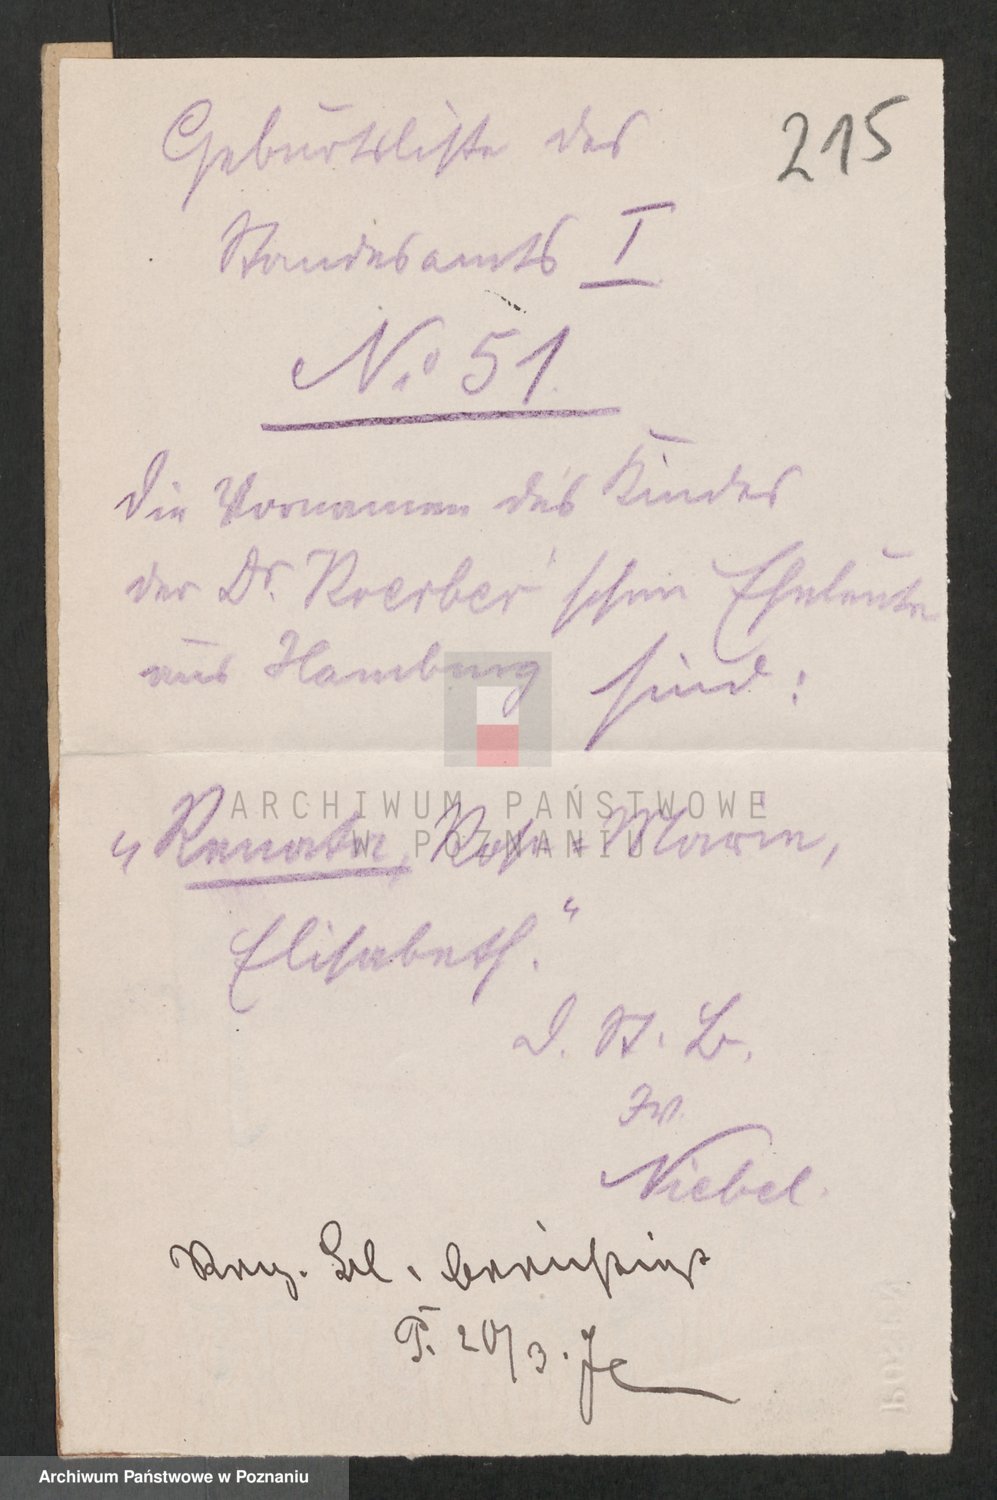 215
Geburtsliste des
Standesamts I
No 51
Die Vornamen des Kindes
der Dr. Koerber'schen Eheleute
aus Hamburg sind:
„Renata, Rosa-Marie,
Elisabeth.“
D. St. B.
Iv
Niebel.
berücksichtigt
P. 20/3. Je
ARCHIWUM PAŃSTWOWE
W POZNANIU
Archiwum Państwowe w Poznaniu